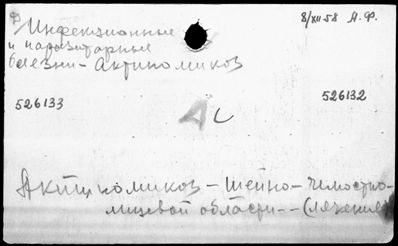 Инфекционные 8/XII 58 А.Ф.
и паразитарные
болезни - Актиномикоз
526133 526132
Ас
Актиномикоз - шейно - челюстно-
лицевой области - - (лечение)